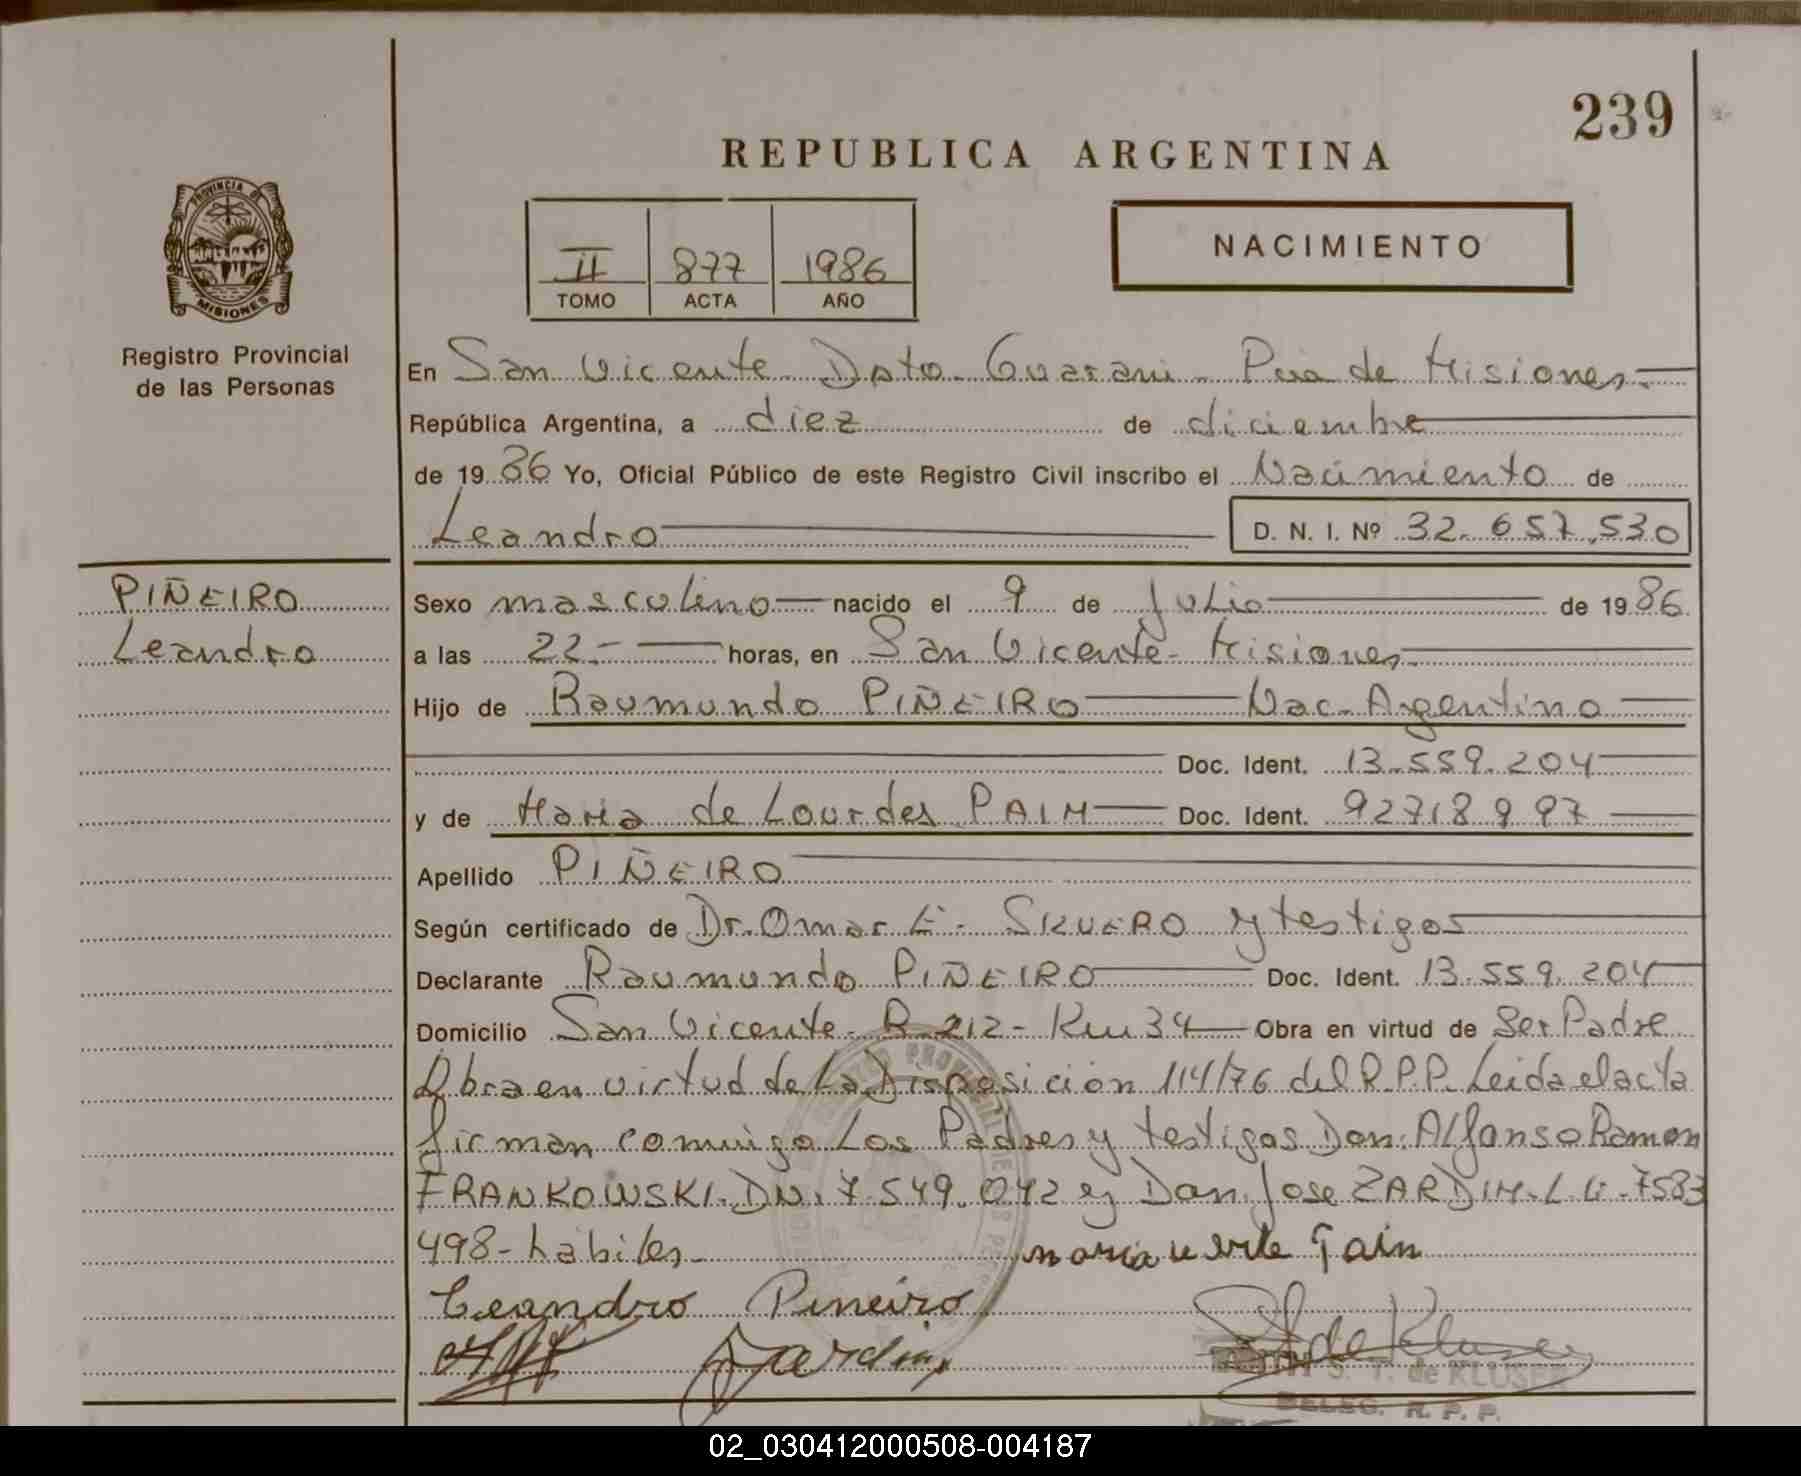 239
REPUBLICA ARGENTINA
PROVINCIA DE
MISIONES
Registro Provincial
de las Personas
II 877 1986
TOMO ACTA AÑO
NACIMIENTO
En San Vicente Dpto. Guarani. Pcia de Misiones.
República Argentina, a diez de diciembre
de 1986 Yo, Oficial Público de este Registro Civil inscribo el Nacimiento de
Leandro D. N. I. Nº 32.657.530
PIÑEIRO
Leandro
Sexo masculino nacido el 9 de Julio de 1986.
a las 22.- horas, en San Vicente- Misiones.
Hijo de Raumundo PIÑEIRO Nac. Argentino
Doc. Ident. 13.559.204
y de Maria de Lourdes PAIM Doc. Ident. 92718997
Apellido PIÑEIRO
Según certificado de Dr. Omar E. y testigos
Declarante Raumundo PIÑEIRO Doc. Ident. 13.559.204
Domicilio San Vicente- R 212- Km 34 Obra en virtud de Ser Padre
Obra en virtud de La Disposición 114/76 del R.P.P. Leida el acta
firman conmigo Los Padres y testigos Don. Alfonso Ramon
FRANKOWSKI. DN. 7.549.042 y Don. Jose ZARDIM. L.E. 7583
498- habiles.
maria Pain
Leandro Pineiro
Jardim
S. T. de KLUSER
DELEG. R. P. P.
02_030412000508-004187